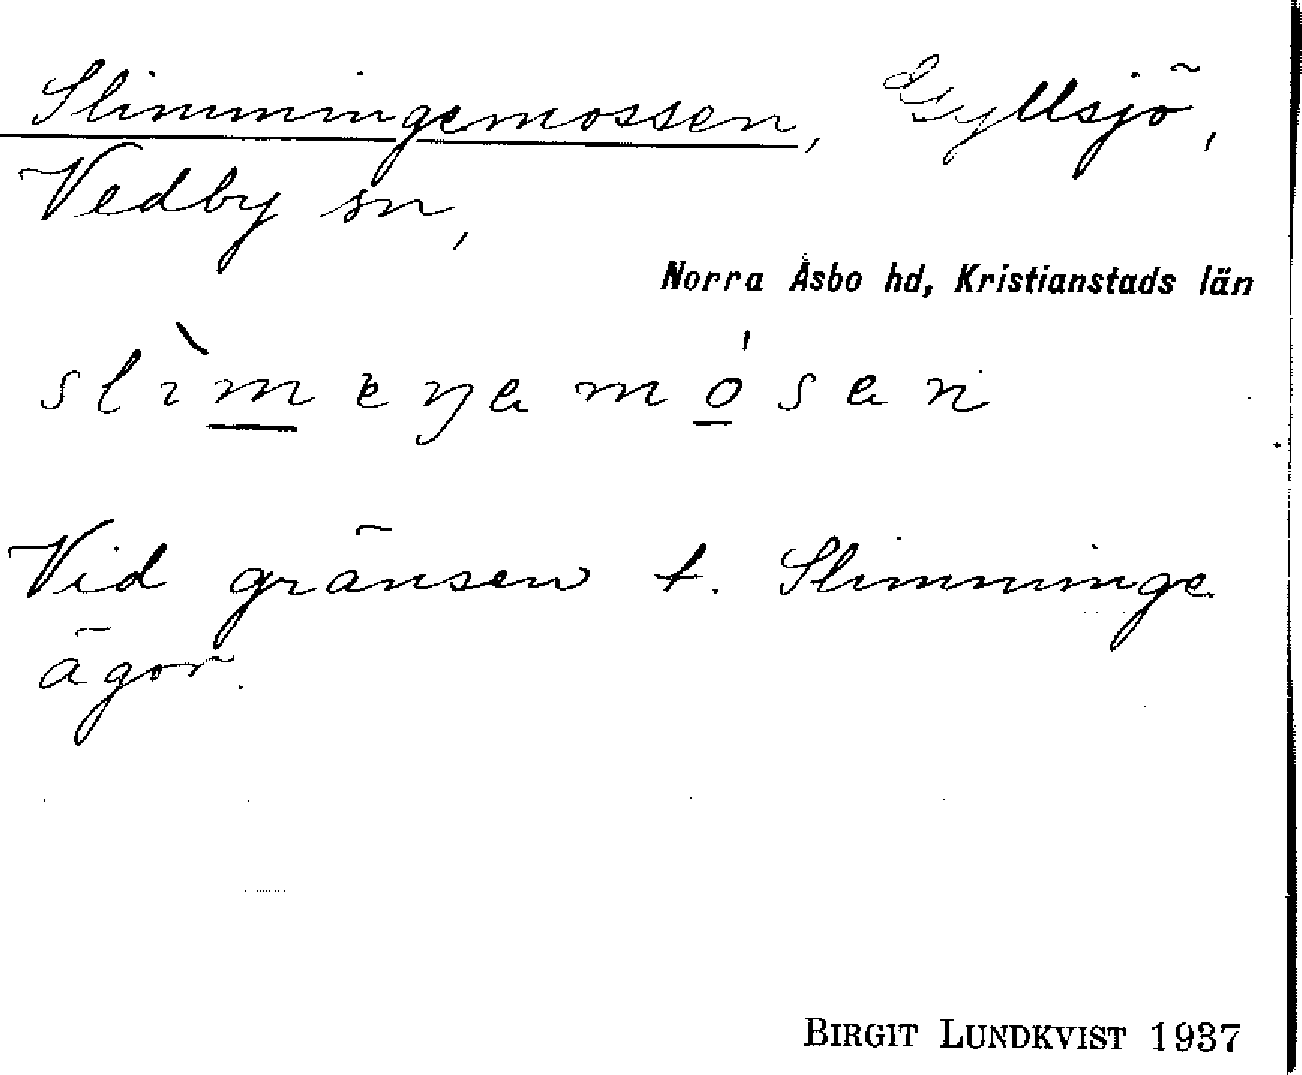 Slimmingemossen, Gyllsjö,
Vedby sn,
Norra Åsbo hd, Kristianstads län
slìmeŋa mósan
Vid gränsen t. Slimminge
ägor.
BIRGIT LUNDKVIST 1937